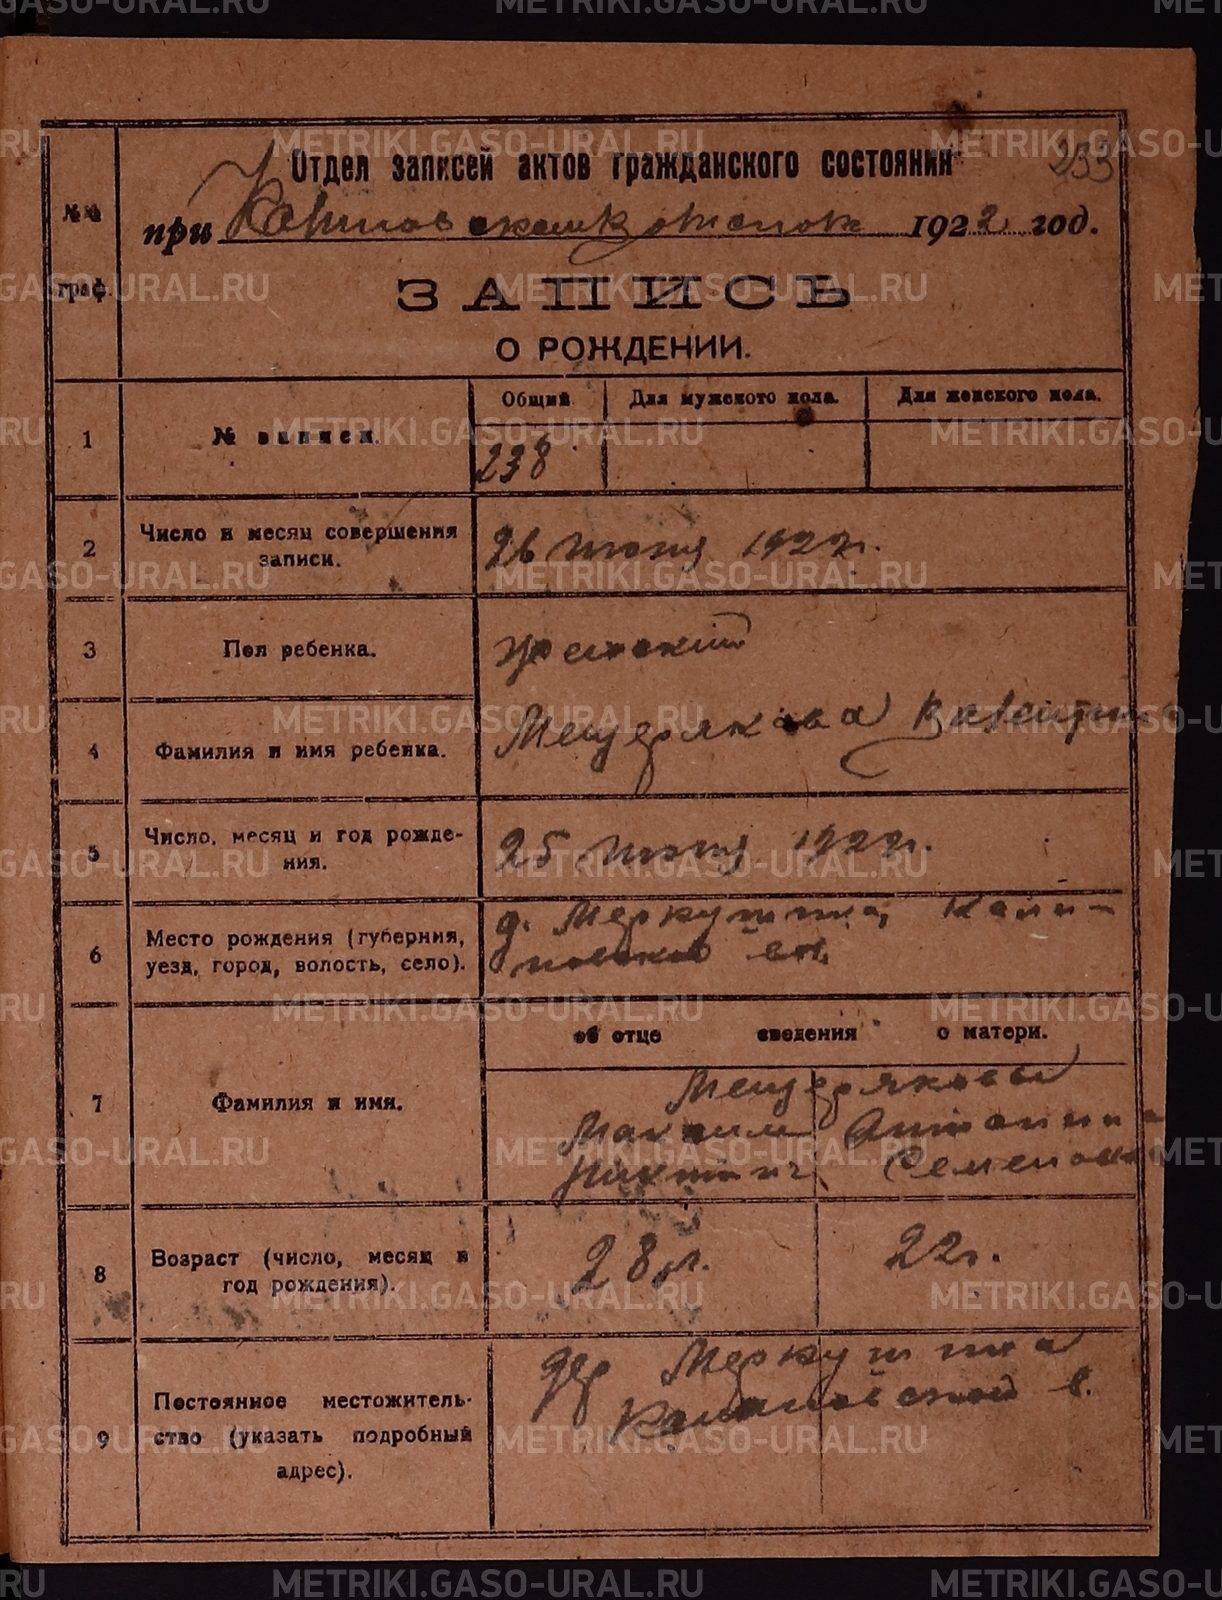 METRIKI.GASO-URAL.RU
Отдел записей актов гражданского состояния 233
при 1922 год.
№№ граф.
ЗАПИСЬ
О РОЖДЕНИИ.
Общий Для мужского пола. Для женского пола.
1 № записи. 238
2 Число и месяц совершения записи. 26 июня 1922г.
3 Пол ребенка. женский
4 Фамилия и имя ребенка. Мещерякова Валентина
5 Число, месяц и год рождения. 25 июня 1922г.
6 Место рождения (губерния, д. Меркушина,
уезд, город, волость, село). вол.
об отце сведения о матери.
Мещеряковы
7 Фамилия и имя. Максим Антонина
Семеновна
8 Возраст (число, месяц и 28 л. 22 г.
год рождения).
9 Постоянное местожитель- дер Меркушина
ство (указать подробный в.
адрес).